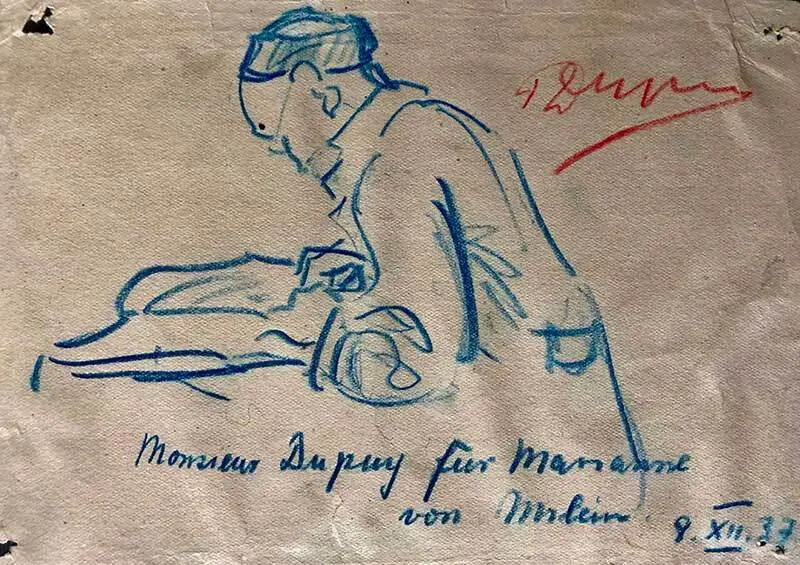 Dupuy
Monsieur Dupuy für Marianne
von
XII. 37